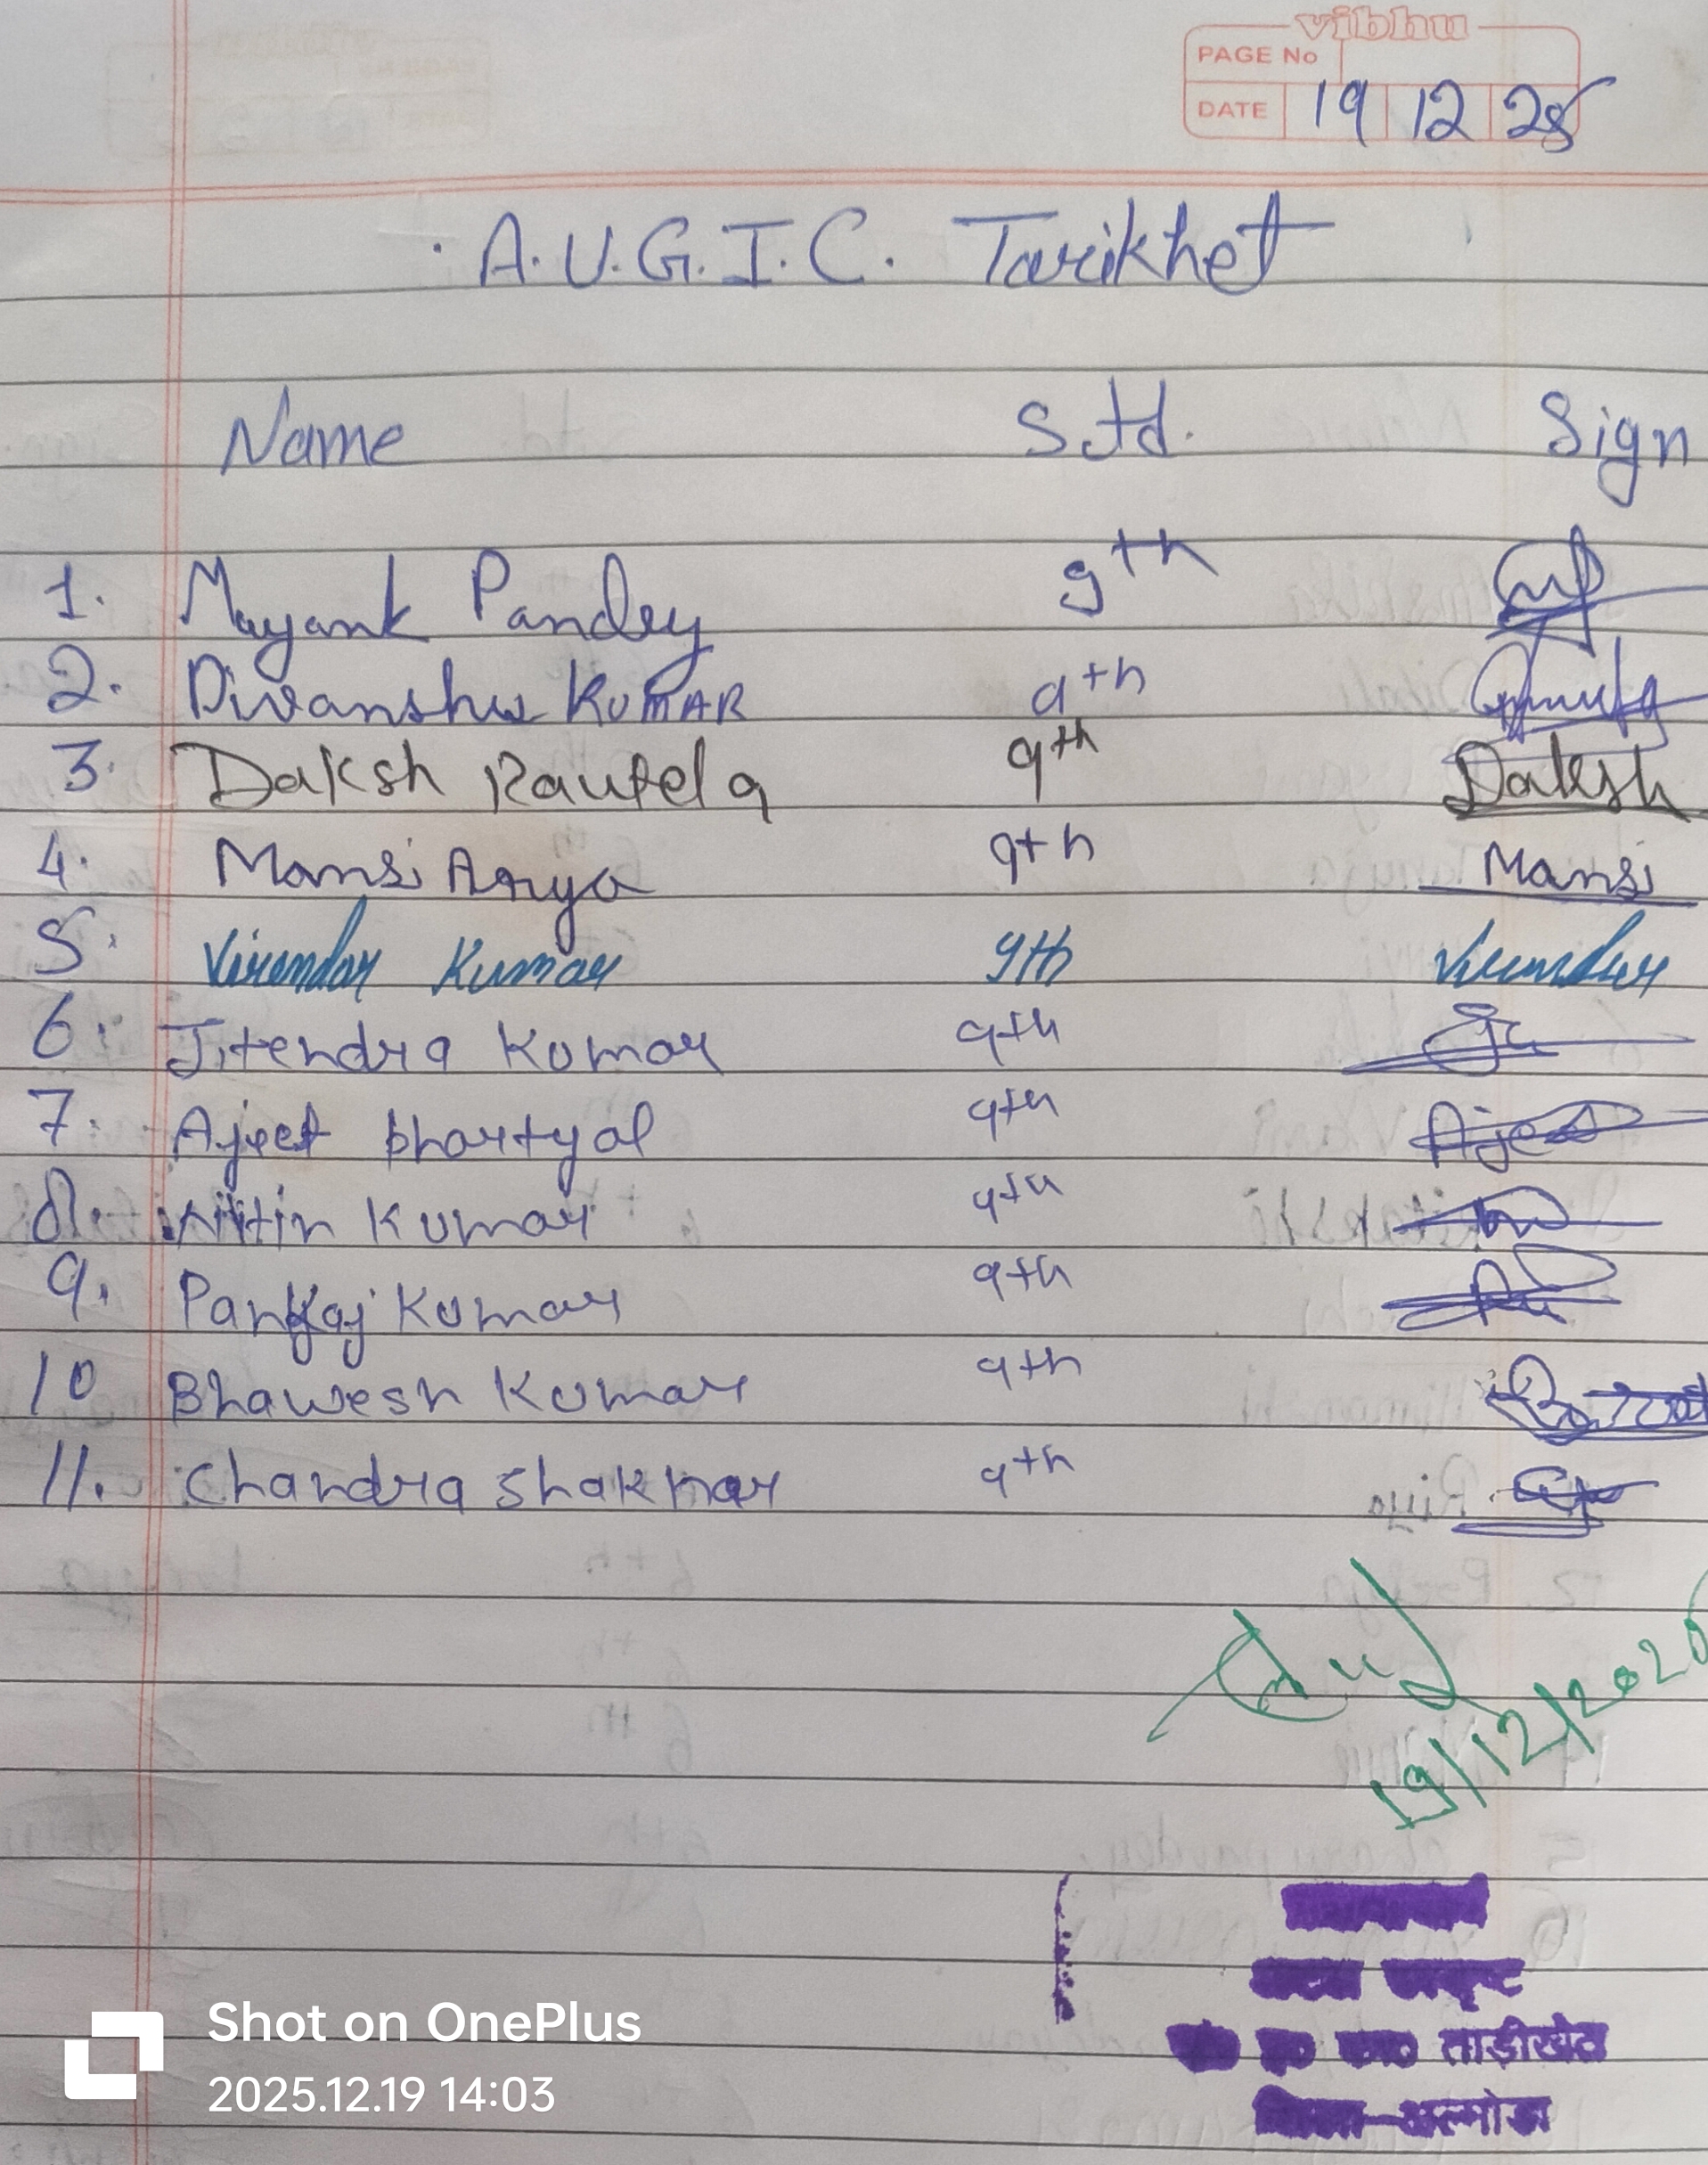 vibhu
PAGE No
DATE 19 12 25
A.U.G.I.C. Tarikhet
Name Std. Sign
1. Mayank Pandey 9th
2. Divanshu KUMAR 9th
3. Daksh Rautela 9th Daksh
4. Mansi Arya 9th Mansi
5. Virendar Kumar 9th Virendar
6. Jitendra Kumar 9th
7. Ajeet bhartyal 9th Ajeet
8. Nitin Kumar 9th
9. Pankaj Kumar 9th
10 Bhawesh Kumar 9th
11. Chandra Shakhar 9th
19/12/2025
ताड़ीखेत
जिला-अल्मोड़ा
Shot on OnePlus
2025.12.19 14:03